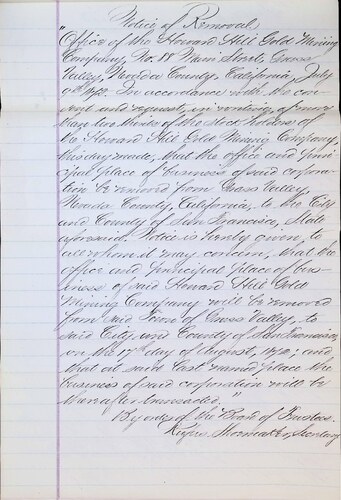 Notice of Removal.
"Office of the Howard Hill Gold Mining
Company, No. 18 Main Street, Grass
Valley, Nevada County, California, July
9th 1872. In accordance with the con-
sent and request, in writing, of more
than two thirds of the stock holders of
the Howard Hill Gold Mining Company,
this day made, that the office and Prin-
cipal place of business of said corpora-
tion be removed from Grass Valley,
Nevada County, California, to the City
and County of San Francisco, State
aforesaid. Notice is hereby given, to
all whom it may concern, that the
office and Principal place of bus-
iness of said Howard Hill Gold
Mining Company will be removed
from said Town of Grass Valley, to
said City and County of San Francisco,
on the 17th day of August, 1872; and
that at said last named place the
business of said corporation will be
thereafter transacted."
By order of the Board of Trustees.
Rufus Shoemaker, Secretary